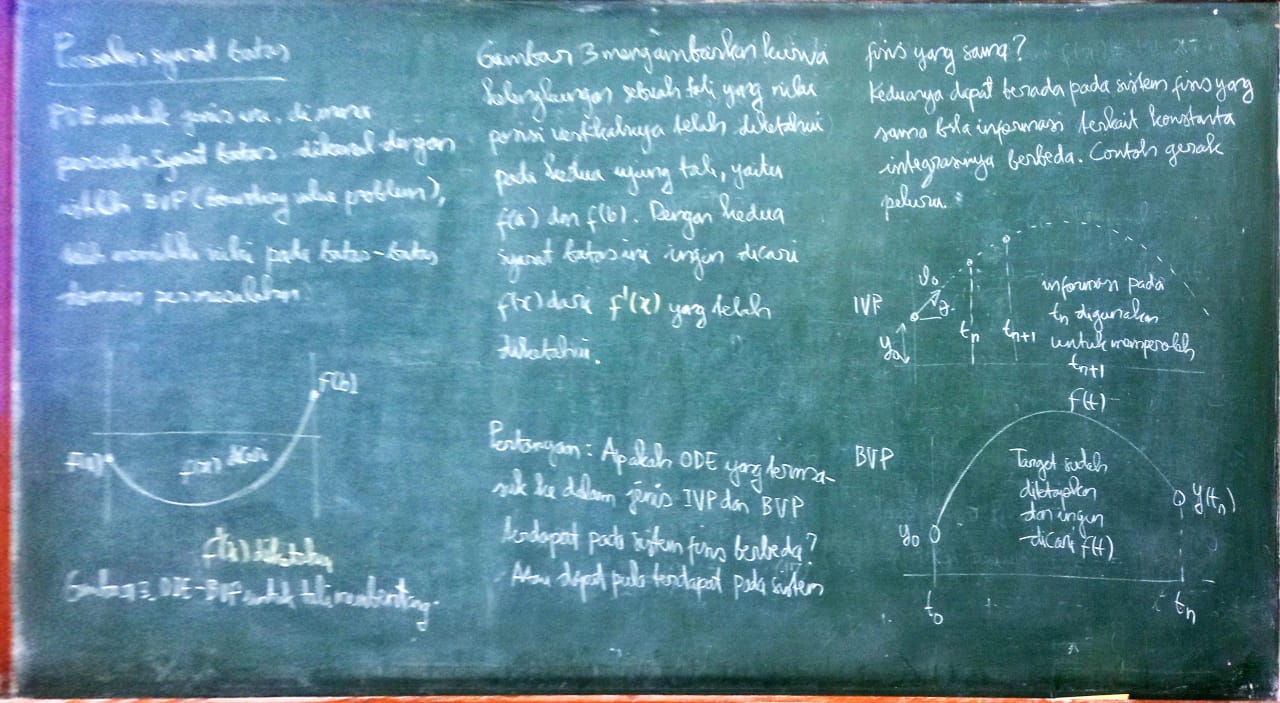 Persoalan syarat batas
PDE untuk jenis ini, di mana
persoalan syarat batas dikenal dengan
istilah BVP (boundary value problem),
telah memiliki nilai pada batas-batas
domain permasalahan.
f(a)
f(b)
f(x) dicari
f'(x) diketahui
Gambar 3. ODE-BVP untuk tali membentang.
Gambar 3 mengambarkan kurva
kelengkungan sebuah tali yang nilai
posisi vertikalnya telah diketahui
pada kedua ujung tali, yaitu
f(a) dan f(b). Dengan kedua
syarat batas ini ingin dicari
f(x) dari f'(x) yang telah
diketahui.
Pertanyan : Apakah ODE yang terma-
suk ke dalam jenis IVP dan BVP
terdapat pada sistem fisis berbeda?
Atau dapat pula terdapat pada sistem
fisis yang sama?
Keduanya dapat berada pada sistem fisis yang
sama bila informasi terkait konstanta
integrasinya berbeda. Contoh gerak
peluru.
IVP
v0
θ
y0
tn
tn+1
informasi pada
tn digunakan
untuk memperoleh
tn+1
BVP
f(t)
Target sudah
ditetapkan
dan ingin
dicari f(t)
y0
y(tn)
t0
tn